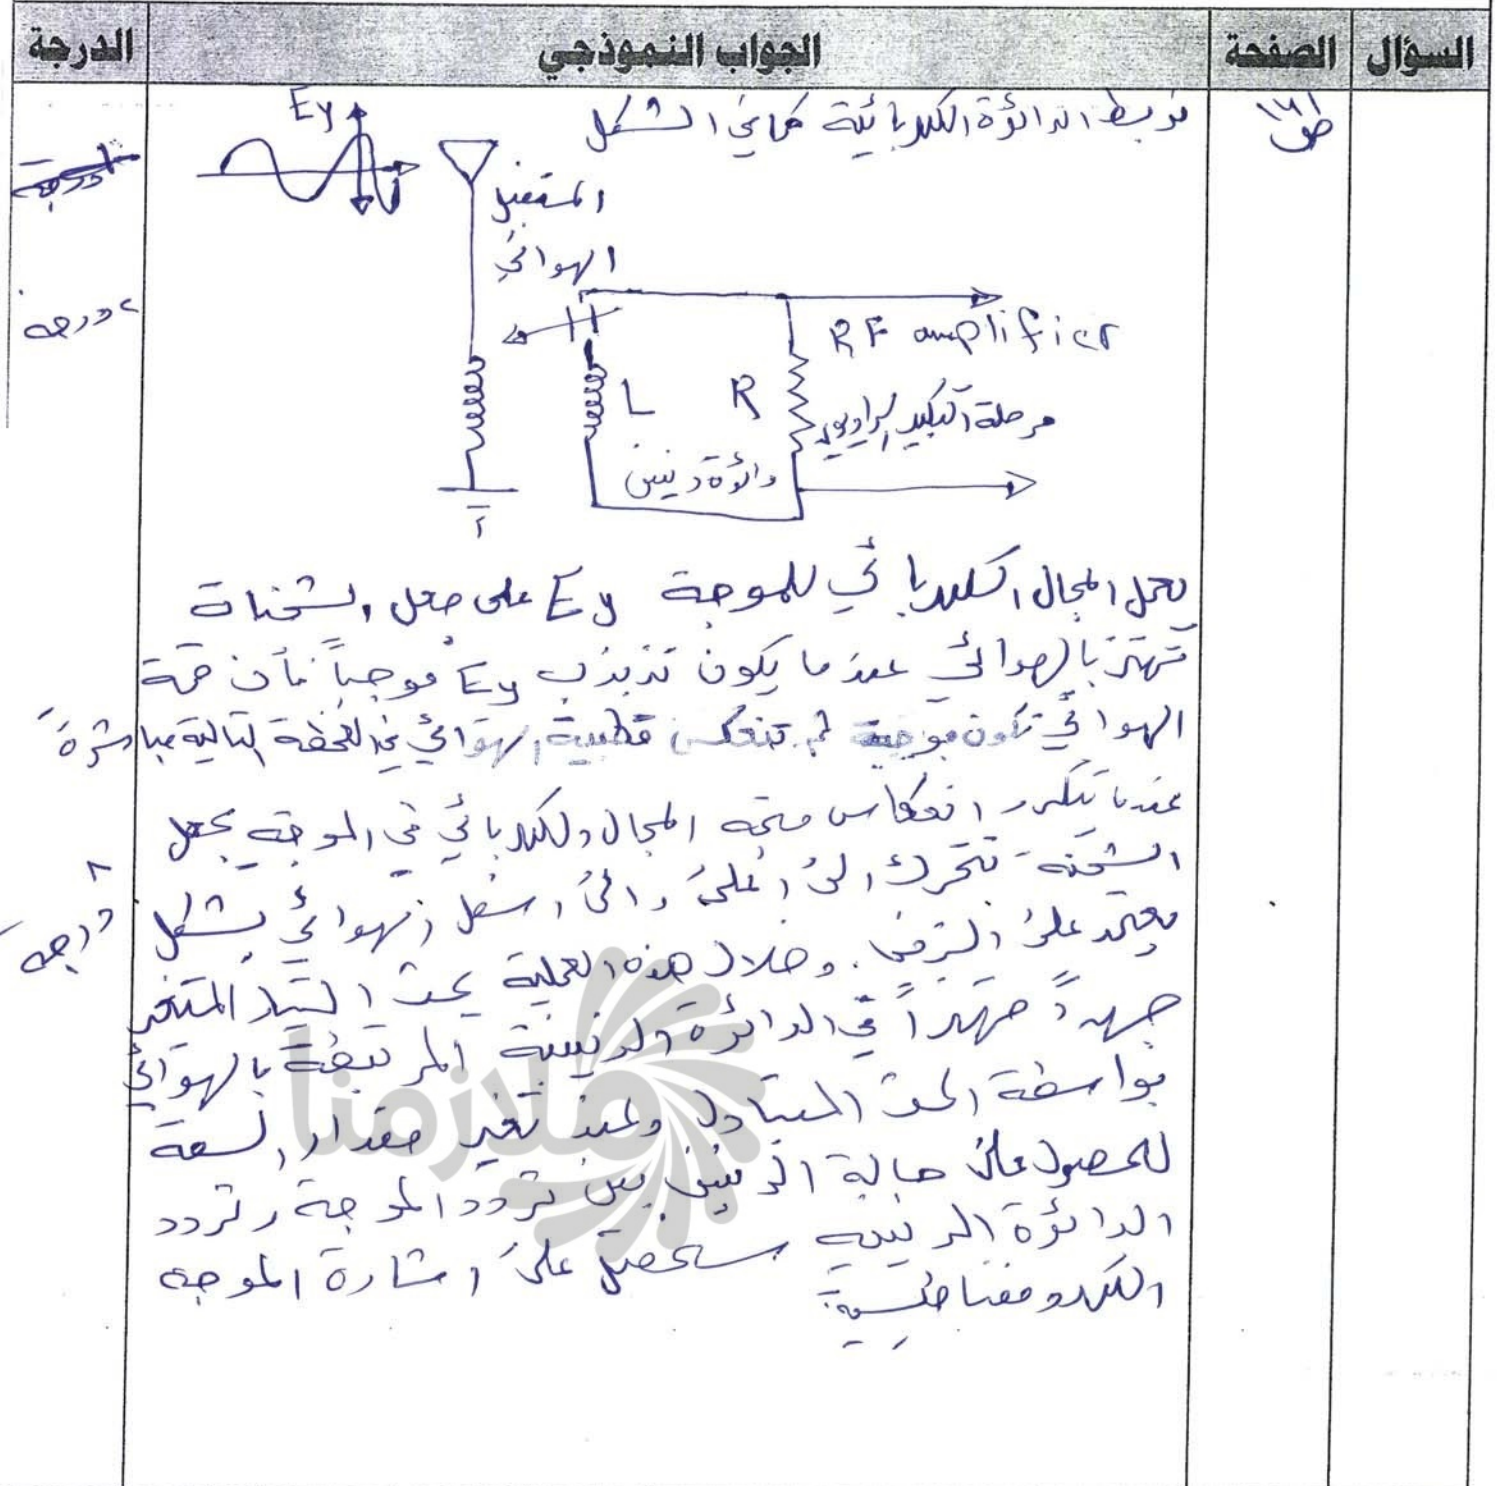 السؤال الصفحة الجواب النموذجي الدرجة
ص ١٦١
نربط الدائرة الكهربائية كما في الشكل
Ey
المستقبل
الهوائي
درجة
RF amplifier
L R
مرحلة التكبير الراديوي
دائرة رنين
يعمل المجال الكهربائي للموجة Ey على جعل الشحنات
تهتز بالهوائي عندما يكون تذبذب Ey موجباً فأن قمة
الهوائي تكون موجبة ثم تنعكس قطبية الهوائي في اللحظة التالية مباشرة
عندما يتكرر انعكاس متجه المجال الكهربائي في الموجة يجعل
الشحنة تتحرك الى أعلى والى اسفل الهوائي بشكل
٨ درجة
يعتمد على الزمن. وخلال هذه العملية يحث التيار المتغير
جهداً مهتزاً في الدائرة الرنينية المرتبطة بالهوائي
بواسطة الحث المتبادل وعند تغير مقدار السعة
للحصول على حالة الرنين بين تردد الموجة وتردد
الدائرة الرنينية سنحصل على اشارة الموجه
الكهرومغناطيسية.
ملازمنا